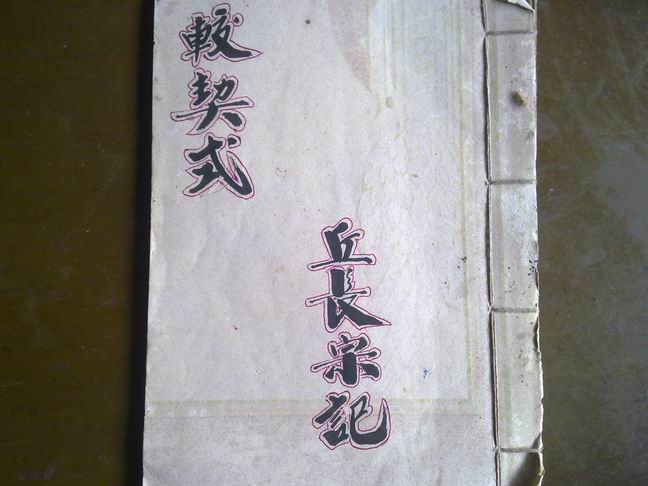 較契式
丘長宗記